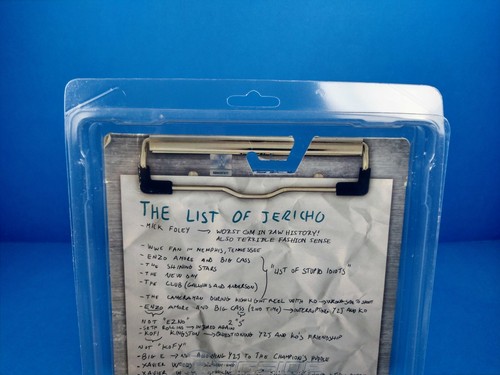 THE LIST OF JERICHO
- MICK FOLEY → WORST GM IN RAW HISTORY!
ALSO TERRIBLE FASHION SENSE
- WWE FAN IN MEMPHIS, TENNESSEE
- ENZO AMORE AND BIG CASS
- THE SHINING STARS
- THE NEW DAY
- THE CLUB (GALLOWS AND ANDERSON)
"LIST OF STUPID IDIOTS"
- THE CAMERAMAN DURING HIGHLIGHT REEL WITH KO →
- ENZO AMORE AND BIG CASS (2ND TIME) → INTERRUPTING Y2J AND KO
NOT "EZNO" 2 "S"
- SETH ROLLINS → AGAIN
- KOFI KINGSTON → QUESTIONING Y2J AND KO'S FRIENDSHIP
NOT "KOFY"
- BIG E → Y2J TO THE CHAMPION'S
- XAVIER WOODS
- XAVIER